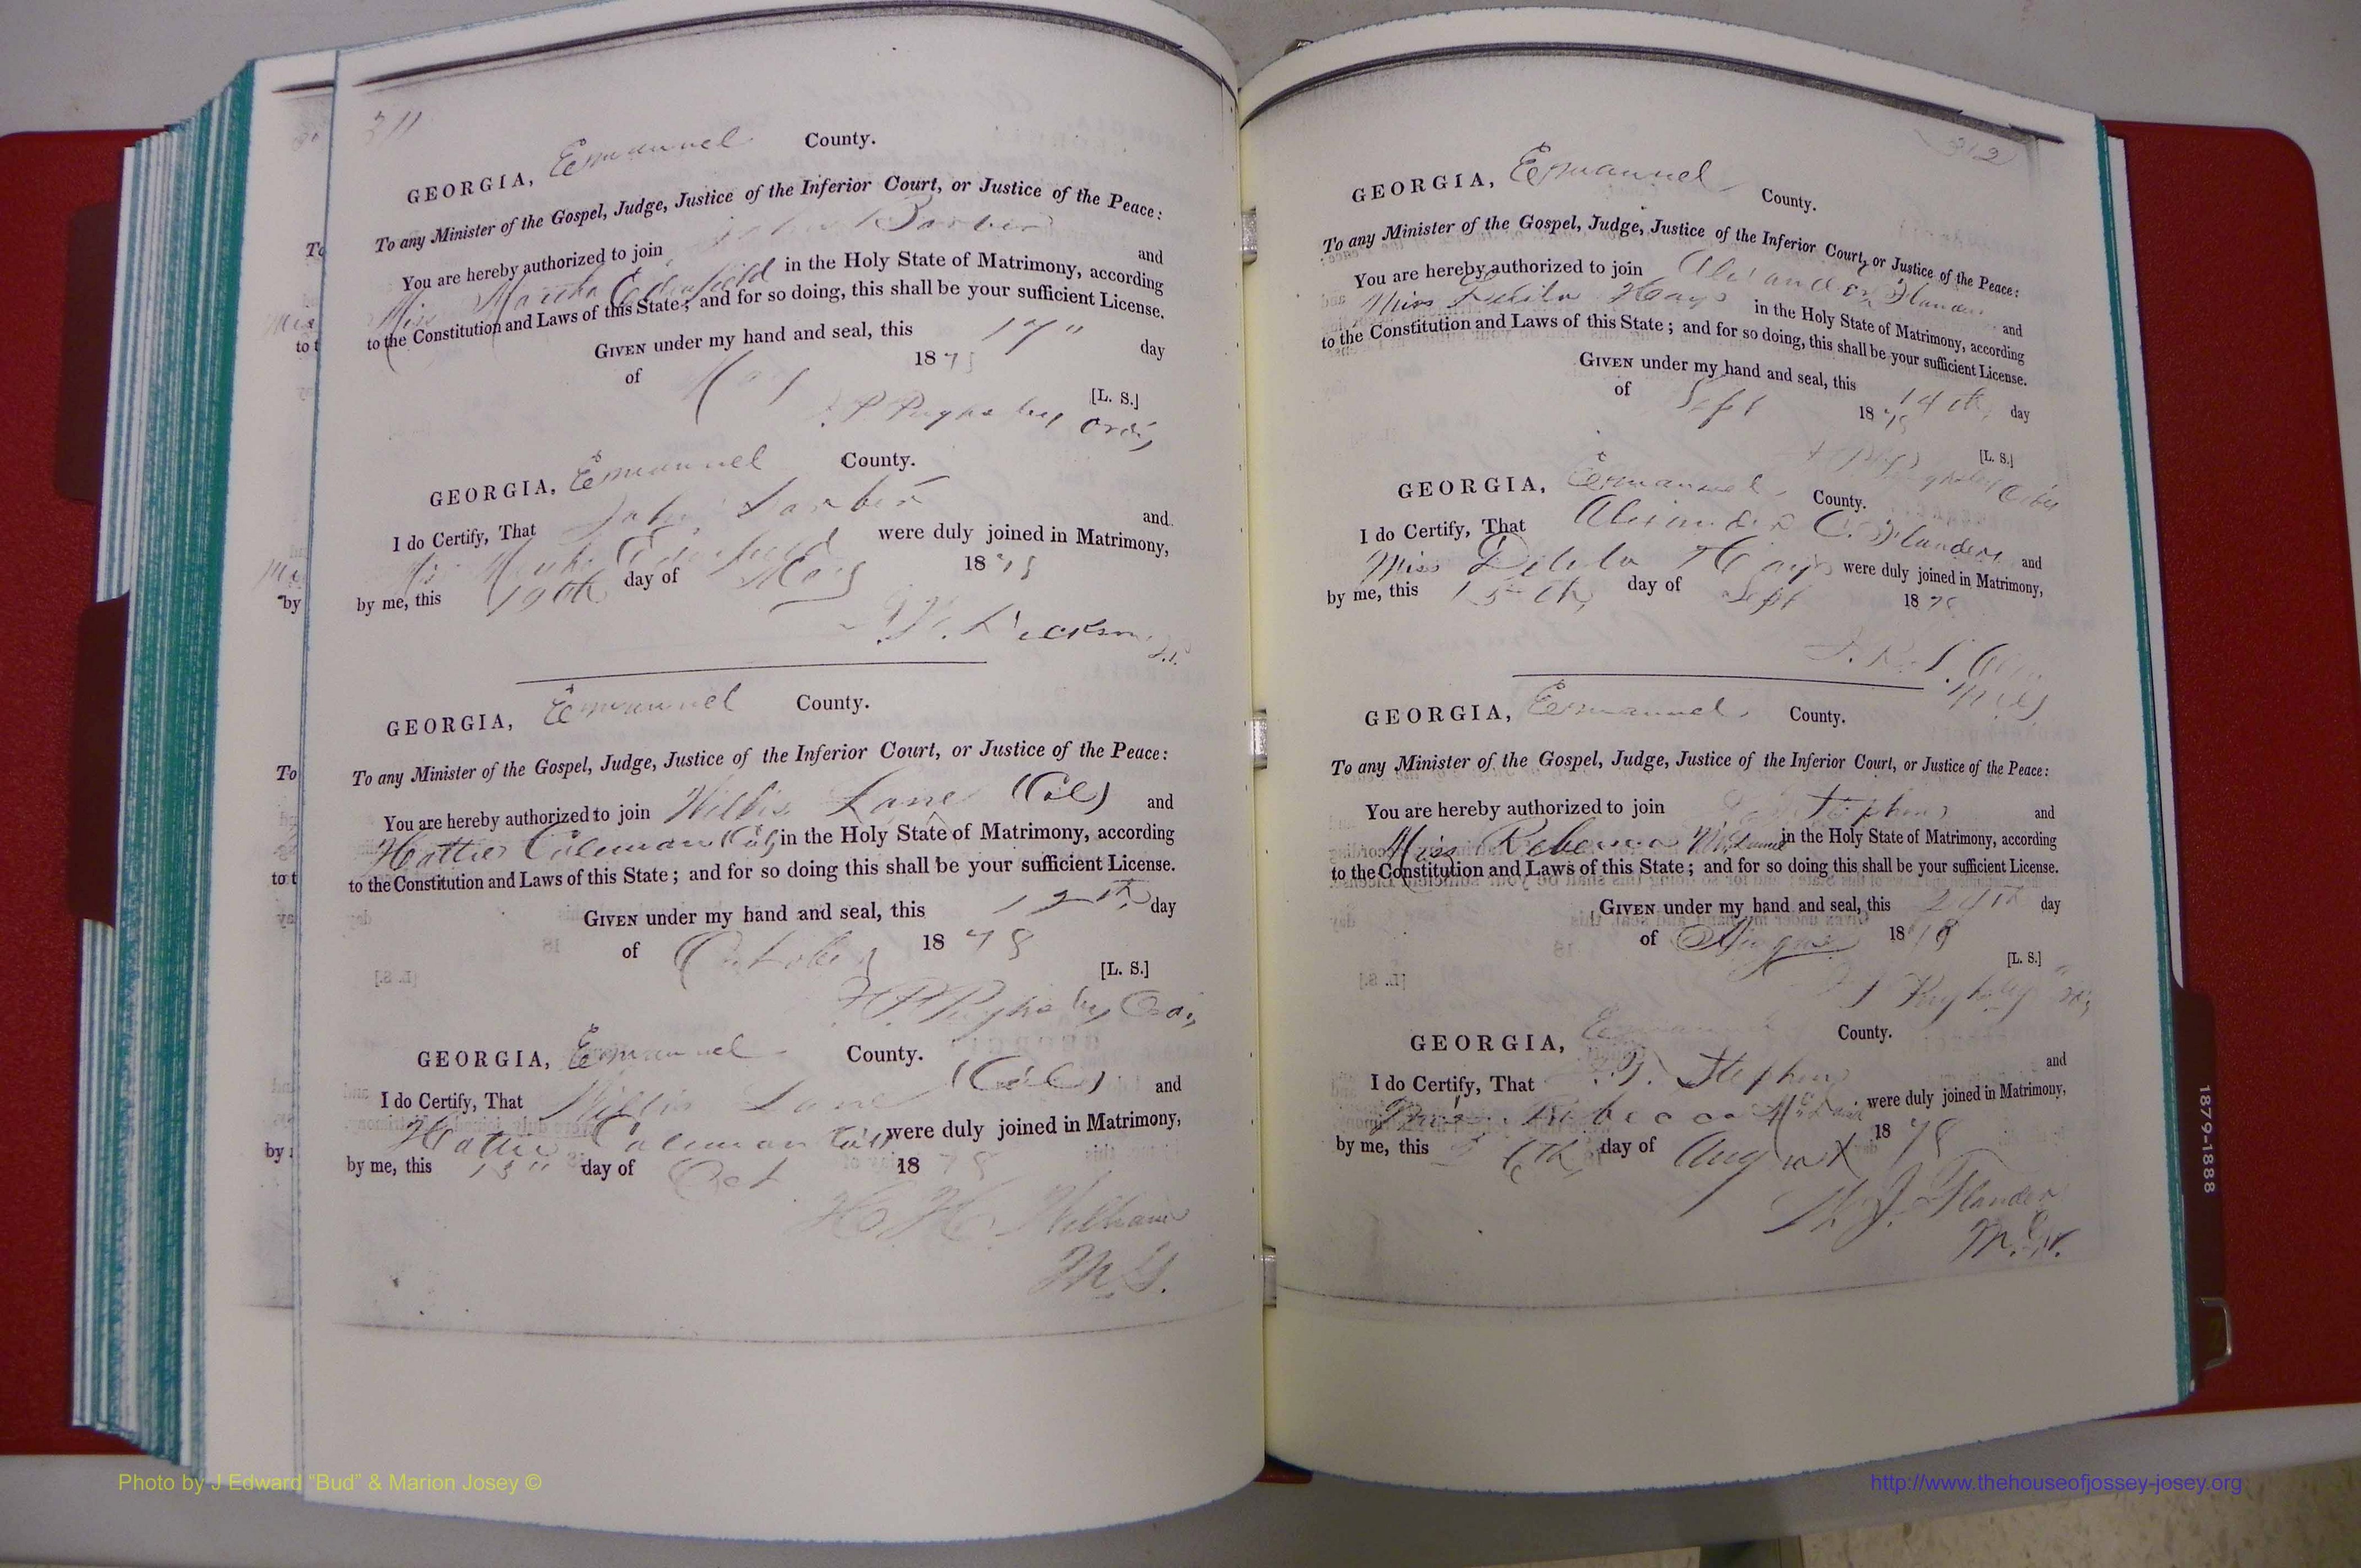 311
GEORGIA, Emanuel County.
To any Minister of the Gospel, Judge, Justice of the Inferior Court, or Justice of the Peace:
You are hereby authorized to join John Barber and
Miss Martha Edenfield in the Holy State of Matrimony, according
to the Constitution and Laws of this State; and for so doing, this shall be your sufficient License.
GIVEN under my hand and seal, this 17" day
of May 1878
[L. S.]
H P Pughsley Ordy
GEORGIA, Emanuel County.
I do Certify, That John Barber and
Martha Edenfield were duly joined in Matrimony,
by me, this 19th day of May 1878
GEORGIA, Emanuel County.
To any Minister of the Gospel, Judge, Justice of the Inferior Court, or Justice of the Peace:
You are hereby authorized to join Willis Lane (Col) and
Hattie Coleman (Col) in the Holy State of Matrimony, according
to the Constitution and Laws of this State; and for so doing this shall be your sufficient License.
GIVEN under my hand and seal, this 12th day
of October 1878
[L. S.]
H P Pughsley Ordy
GEORGIA, Emanuel County.
I do Certify, That Willis Lane (Col) and
Hattie Coleman Col were duly joined in Matrimony,
by me, this 13" day of Oct 1878
H. H. William
M.G.
312
GEORGIA, Emanuel County.
To any Minister of the Gospel, Judge, Justice of the Inferior Court, or Justice of the Peace:
You are hereby authorized to join Alexander Flanders and
Miss Delila Hays in the Holy State of Matrimony, according
to the Constitution and Laws of this State; and for so doing, this shall be your sufficient License.
GIVEN under my hand and seal, this 14th day
of Sept 1878
[L. S.]
GEORGIA, Emanuel County.
I do Certify, That Alexander C. Flanders and
Miss Delila Hays were duly joined in Matrimony,
by me, this 15th day of Sept 1878
GEORGIA, Emanuel County.
To any Minister of the Gospel, Judge, Justice of the Inferior Court, or Justice of the Peace:
You are hereby authorized to join Stephens and
Miss Rebecca in the Holy State of Matrimony, according
to the Constitution and Laws of this State; and for so doing this shall be your sufficient License.
GIVEN under my hand and seal, this day
of August 1878
[L. S.]
Pughsley
GEORGIA, Emanuel County.
I do Certify, That Stephens and
Rebecca were duly joined in Matrimony,
by me, this day of August 1878
Flanders
M.G.
1879-1888
Photo by J Edward “Bud” & Marion Josey ©
http://www.thehouseofjossey-josey.org